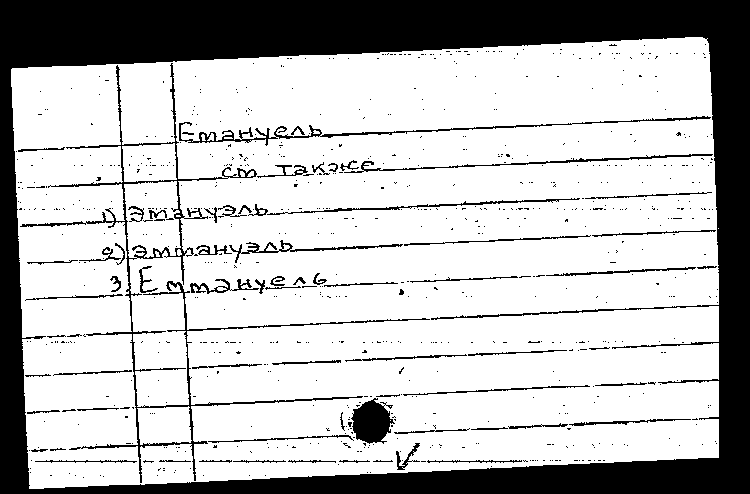 Емануель
см также
1) Эмануэль
2) Эммануэль
3. Еммануель